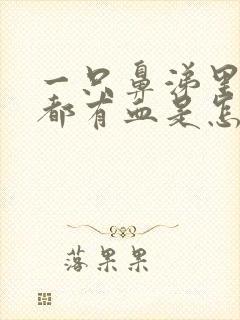 一只鼻涕里
都有血是怎
落果果